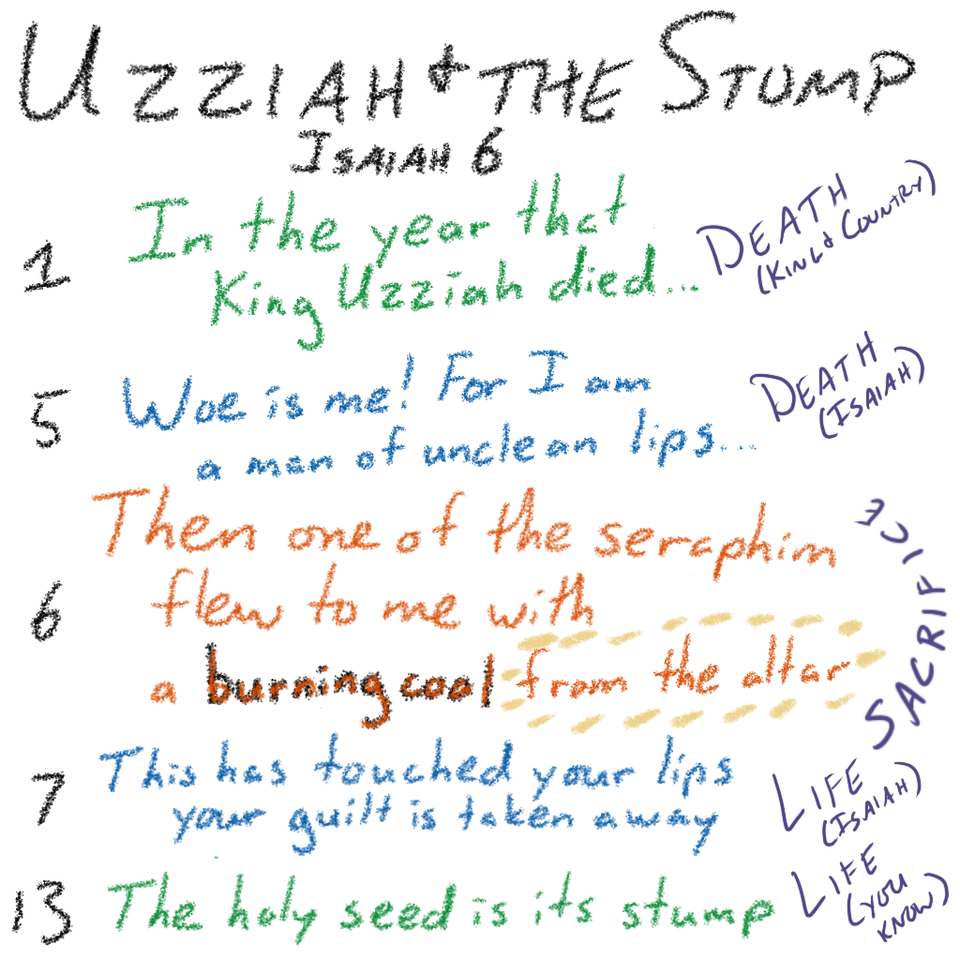 UZZIAH & THE STUMP
ISAIAH 6
1 In the year that
King Uzziah died...
DEATH
(KING & COUNTRY)
5 Woe is me! For I am
a man of unclean lips...
DEATH
(ISAIAH)
Then one of the seraphim
6 flew to me with
a burning coal from the altar
SACRIFICE
7 This has touched your lips
your guilt is taken away
LIFE
(ISAIAH)
13 The holy seed is its stump
LIFE
(YOU
KNOW)